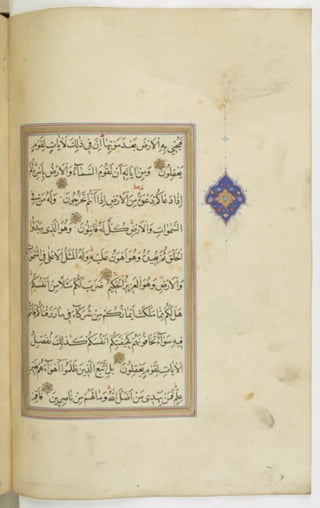 فَيُحْيِي بِهِ الْأَرْضَ بَعْدَ مَوْتِهَا إِنَّ فِي ذَٰلِكَ لَآيَاتٍ لِقَوْمٍ
يَعْقِلُونَ وَمِنْ آيَاتِهِ أَنْ تَقُومَ السَّمَاءُ وَالْأَرْضُ بِأَمْرِهِ ثُمَّ
إِذَا دَعَاكُمْ دَعْوَةً مِنَ الْأَرْضِ إِذَا أَنْتُمْ تَخْرُجُونَ وَلَهُ مَنْ فِي
السَّمَوَاتِ وَالْأَرْضِ كُلٌّ لَهُ قَانِتُونَ وَهُوَ الَّذِي يَبْدَؤُا
الْخَلْقَ ثُمَّ يُعِيدُهُ وَهُوَ أَهْوَنُ عَلَيْهِ وَلَهُ الْمَثَلُ الْأَعْلَى فِي السَّمَوَاتِ
وَالْأَرْضِ وَهُوَ الْعَزِيزُ الْحَكِيمُ ضَرَبَ لَكُمْ مَثَلًا مِنْ أَنْفُسِكُمْ
هَلْ لَكُمْ مِمَّا مَلَكَتْ أَيْمَانُكُمْ مِنْ شُرَكَاءَ فِي مَا رَزَقْنَاكُمْ فَأَنْتُمْ
فِيهِ سَوَاءٌ تَخَافُونَهُمْ كَخِيفَتِكُمْ أَنْفُسَكُمْ كَذَٰلِكَ نُفَصِّلُ
الْآيَاتِ لِقَوْمٍ يَعْقِلُونَ بَلِ اتَّبَعَ الَّذِينَ ظَلَمُوا أَهْوَاءَهُمْ بِغَيْرِ
عِلْمٍ فَمَنْ يَهْدِي مَنْ أَضَلَّ اللَّهُ وَمَا لَهُمْ مِنْ نَاصِرِينَ فَأَقِمْ